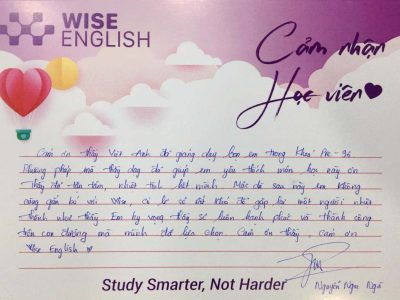 WISE
ENGLISH
Cảm nhận
Học viên
Cảm ơn thầy Việt Anh đã giảng dạy bọn em trong khoá Pre-
Phương pháp mà thầy dạy đã giúp em yêu thích môn học này ơn
Thầy đã tận tâm, nhiệt tình hết mình. Mặc dù sau này em không
còn gắn bó với Wise, có lẽ sẽ rất khó để gặp lại một người nhiệt
thành như thầy. Em hy vọng thầy sẽ luôn hạnh phúc và thành công
trên con đường mà mình đã lựa chọn. Cảm ơn thầy, cảm ơn
Wise English
Nguyễn Ngọc Ngà
Study Smarter, Not Harder